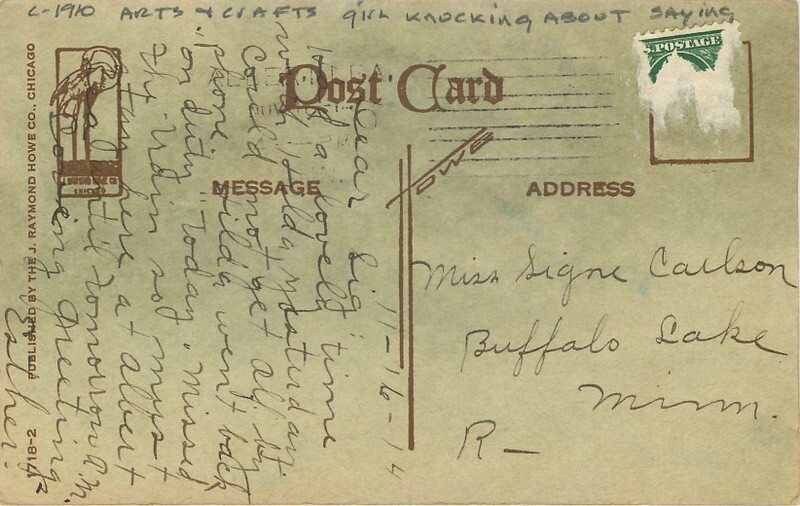 C-1910 ARTS & CRAFTS girl KNOCKING ABOUT SAYING
U.S. POSTAGE
Post Card
HOWE
MESSAGE
ADDRESS
CHICAGO
PUBLISHED BY THE J. RAYMOND HOWE CO., CHICAGO
718-2
11-16-14
Dear Sig
Had a lovely time
with Hilda yesterday
Could not get Al. by
phone. Hilda went back
on duty Today. Missed
the train so must
stay here at Albert
until tomorrow A.M.
Loving greeting
Esther.
Miss Signe Carlson
Buffalo Lake
Minn.
R-